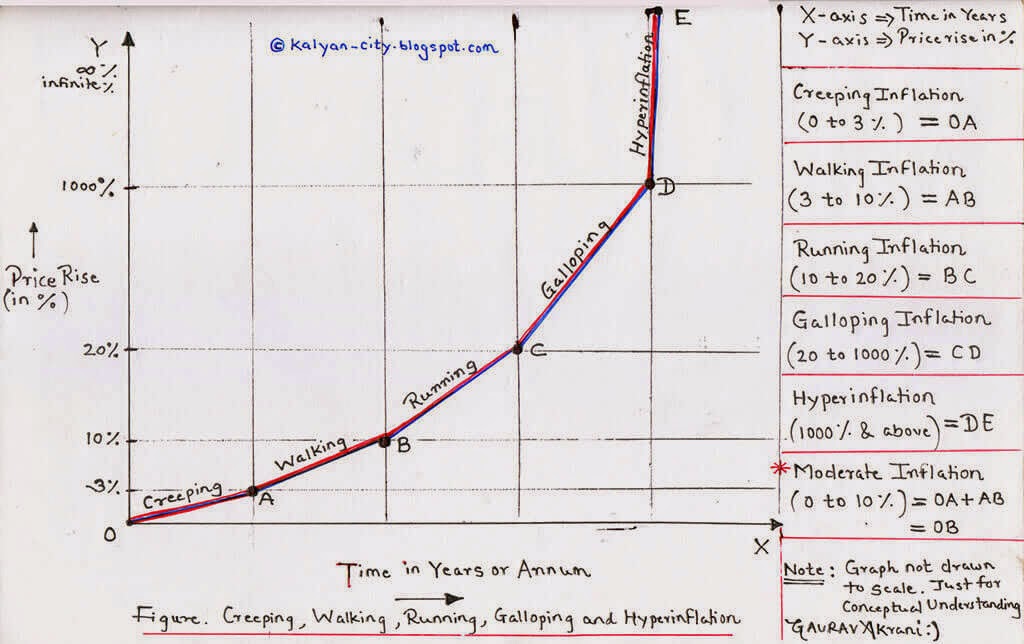 © kalyan-city.blogspot.com
Y
∞ %
infinite %
1000%
Price Rise
(in %)
20%
10%
3%
O
Creeping
A
Walking
B
Running
C
Galloping
D
Hyperinflation
E
X
Time in Years or Annum
Figure. Creeping, Walking, Running, Galloping and Hyperinflation
X-axis ⇒ Time in Years
Y-axis ⇒ Price rise in %
Creeping Inflation
(0 to 3%) = OA
Walking Inflation
(3 to 10%) = AB
Running Inflation
(10 to 20%) = BC
Galloping Inflation
(20 to 1000%) = CD
Hyperinflation
(1000% & above) = DE
* Moderate Inflation
(0 to 10%) = OA + AB
= OB
Note: Graph not drawn
to scale. Just for
Conceptual Understanding
GAURAV Akrani :)